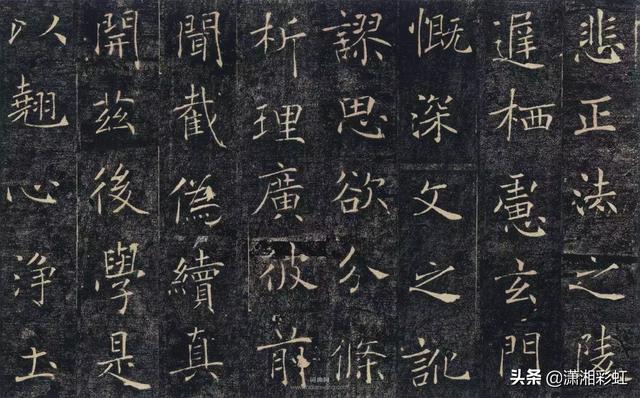 悲正法之陵
遲栖慮玄門
慨深文之訛
謬思欲分條
析理廣彼前
聞截偽續真
開茲後學是
以翹心淨土
头条 @潇湘彩虹